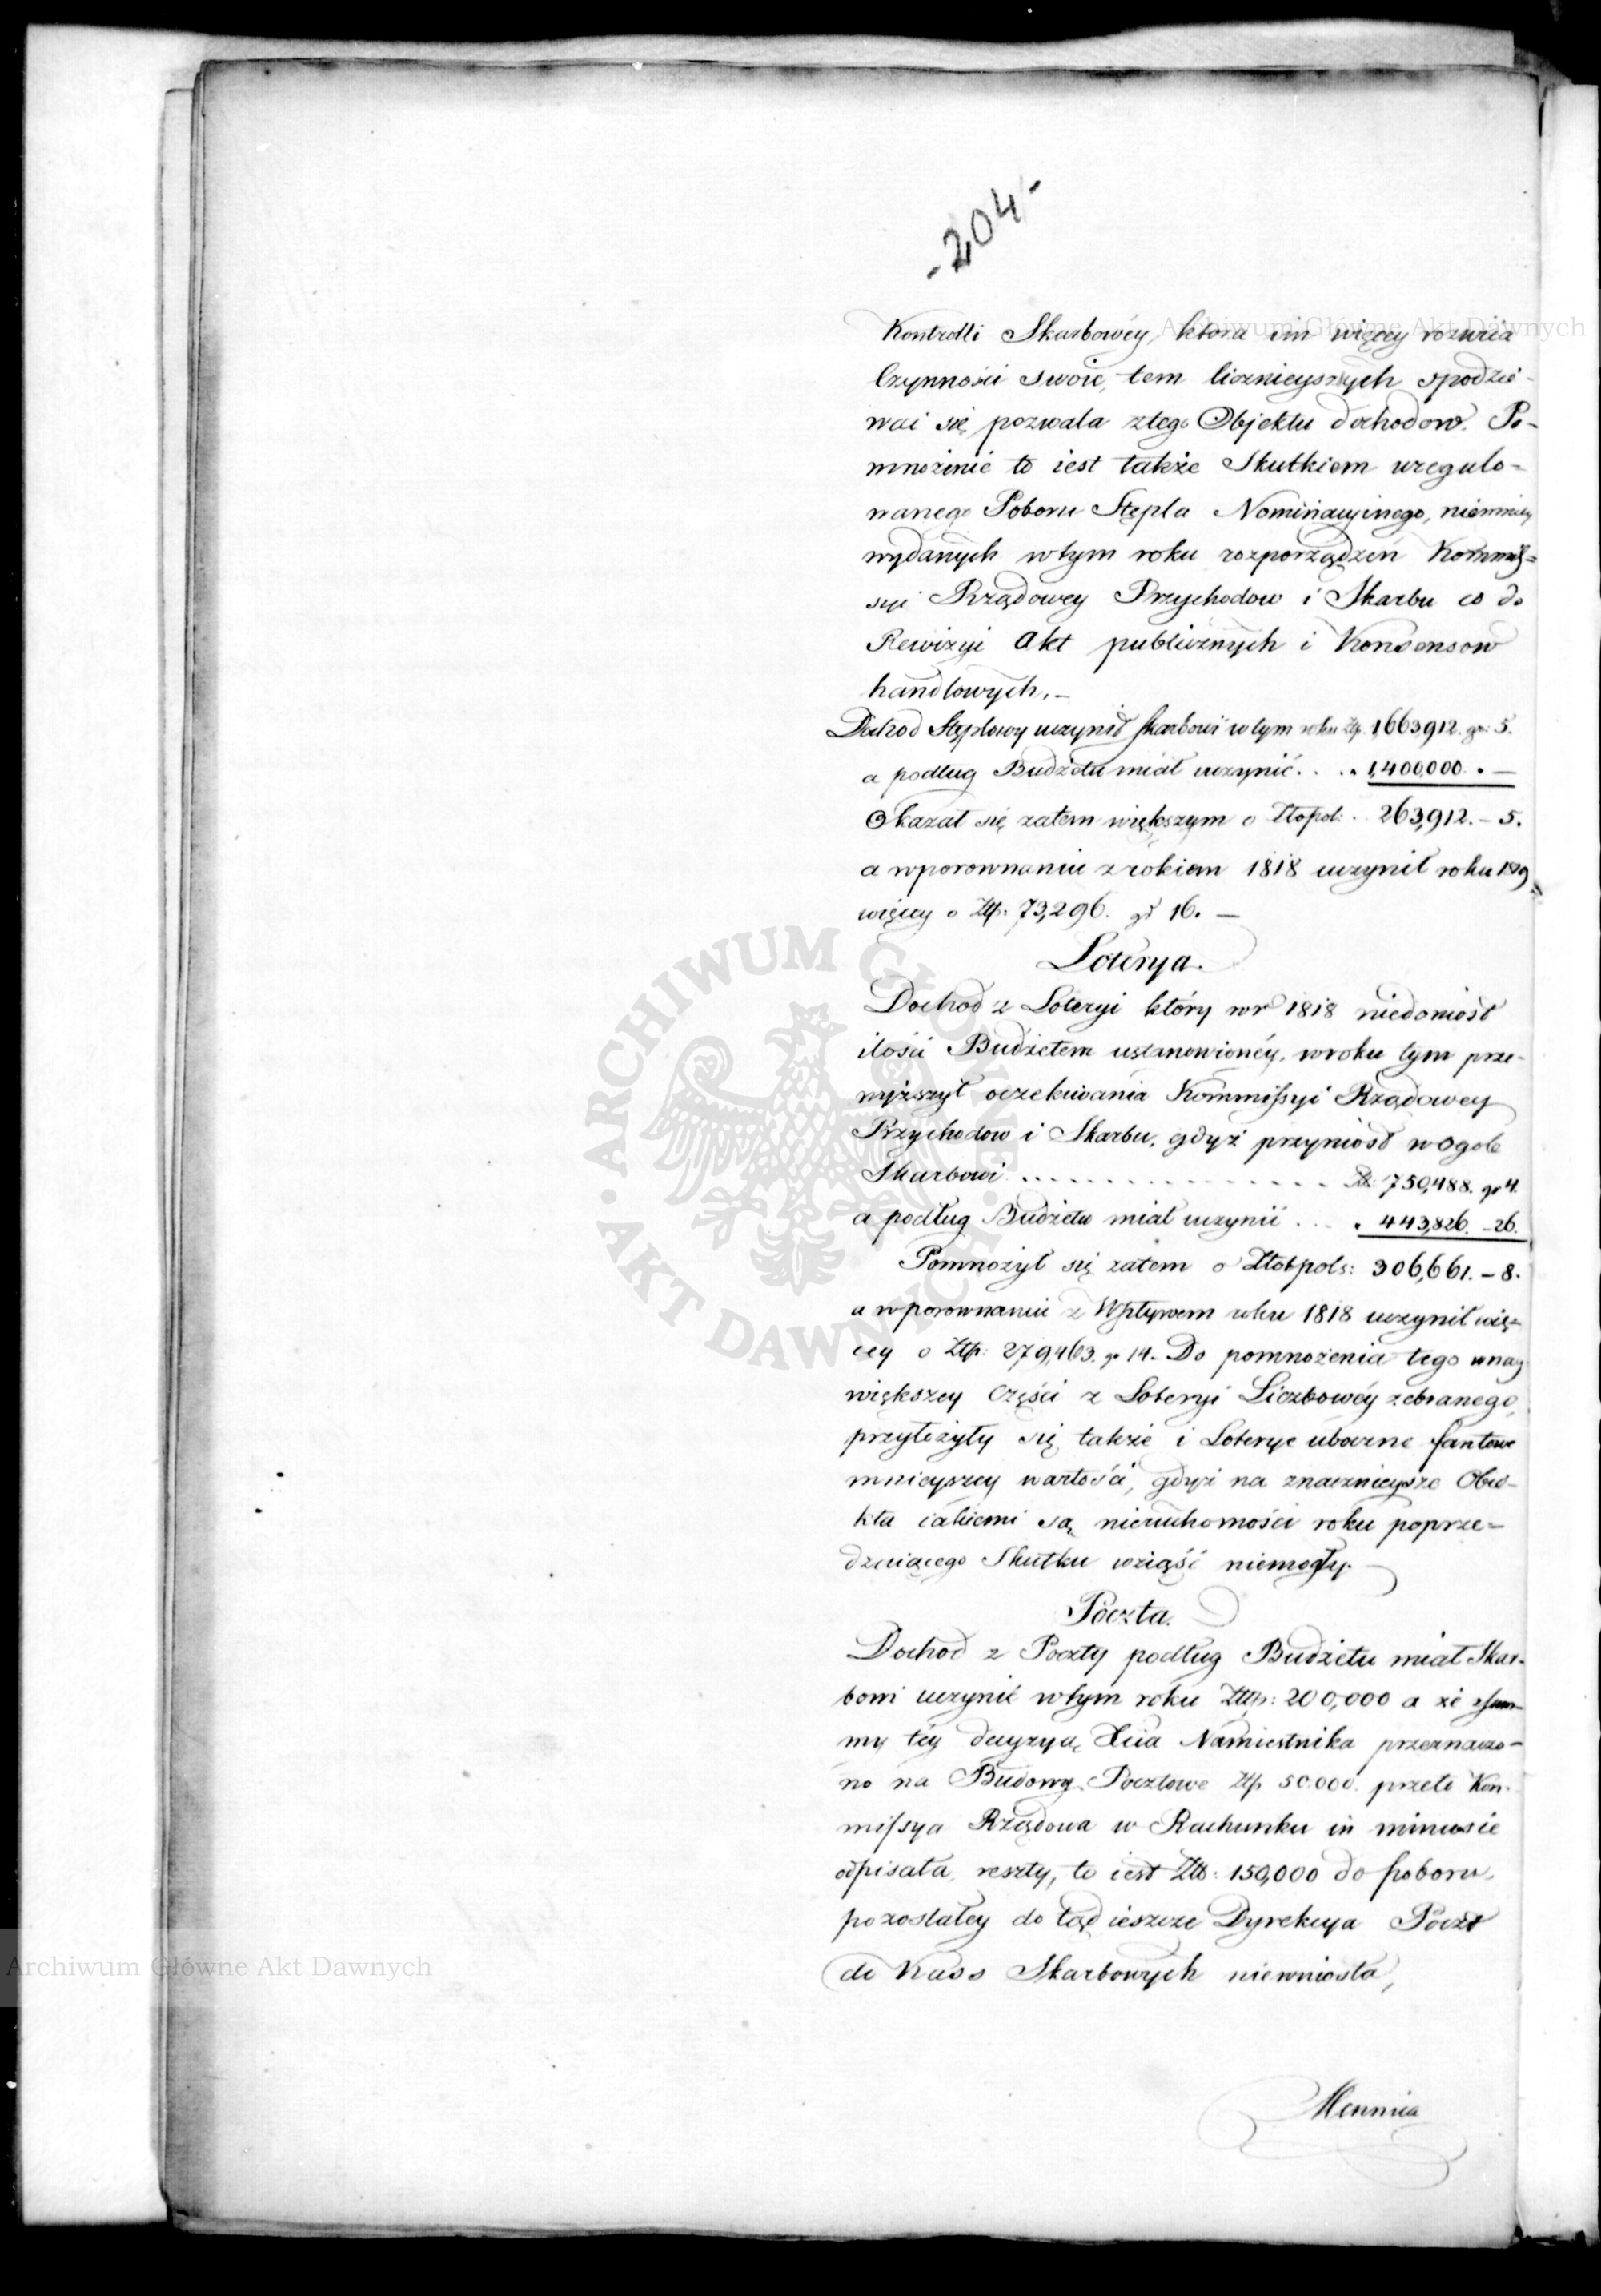 -204-
Kontrolli Skarbowéy, ktora im więcéy rozwiia
Czynności swoie, tem licznieyszych spodzie-
wać się pozwala z tego Objektu dochodow. Po-
mnożenie to iest także Skutkiem uregulo-
wanego Poboru Stępla Nominacyinego, niemniey
wydanych w tym roku rozporządzeń Kommis-
syi Rządowey Przychodow i Skarbu co do
Rewizyi Akt publicznych i Konsensow
handlowych.-
Dochod Stęplowy uczynił Skarbowi w tym roku Złp. 1,663,912. gr: 5.
a podług Budżetu miał uczynić . . . 1,400,000. . —
Okazał się zatem większym o Złopol: . 263,912. - 5.
a w porownaniu z rokiem 1818 uczynił roku 1819
więcey o Złp: 73,296. gr 16. —
Loterya.
Dochod z Loteryi który w r 1818 niedoniosł
ilości Budżetem ustanowionéy, w roku tym prze-
wyższył oczekiwania Kommissyi Rządowey
Przychodow i Skarbu, gdyż przyniosł w ogole
Skarbowi . . . . . . . . . . . . . . . Zł: 750,488. gr 4.
a podług Budżetu miał uczynić . . . 443,826. - 26.
Pomnożył się zatem o Złotpols: 306,661. - 8.
a w porownaniu z Wpływem roku 1818 uczynił wię-
cey o Złp: 279,463. gr 14. Do pomnożenia tego w nay
większey części z Loteryi Liczbowéy zebranego,
przyłożyły się także i Loterye uboczne fantowe
mnieyszey wartości, gdyż na znacznieysze Obie-
kta iakiemi są nieruchomości roku poprze-
dzaiącego Skutku wziąść niemogły.
Poczta.
Dochod z Poczty podług Budżetu miał Skar-
bowi uczynić w tym roku Złtp: 200,000 a że z sum-
my téy decyzyą Xcia Namiestnika przeznaczo-
no na Budowy Pocztowe Złp 50.000. przeto Kom-
missya Rządowa w Rachunku in minusie
odpisała, reszty, to iest Złt: 150,000 do poboru
pozostałey do tąd ieszcze Dyrekcya Poczt
do Kass Skarbowych niewniosła,
Mennica
Archiwum Główne Akt Dawnych
Archiwum Główne Akt Dawnych
ARCHIWUM GŁÓWNE · AKT DAWNYCH ·